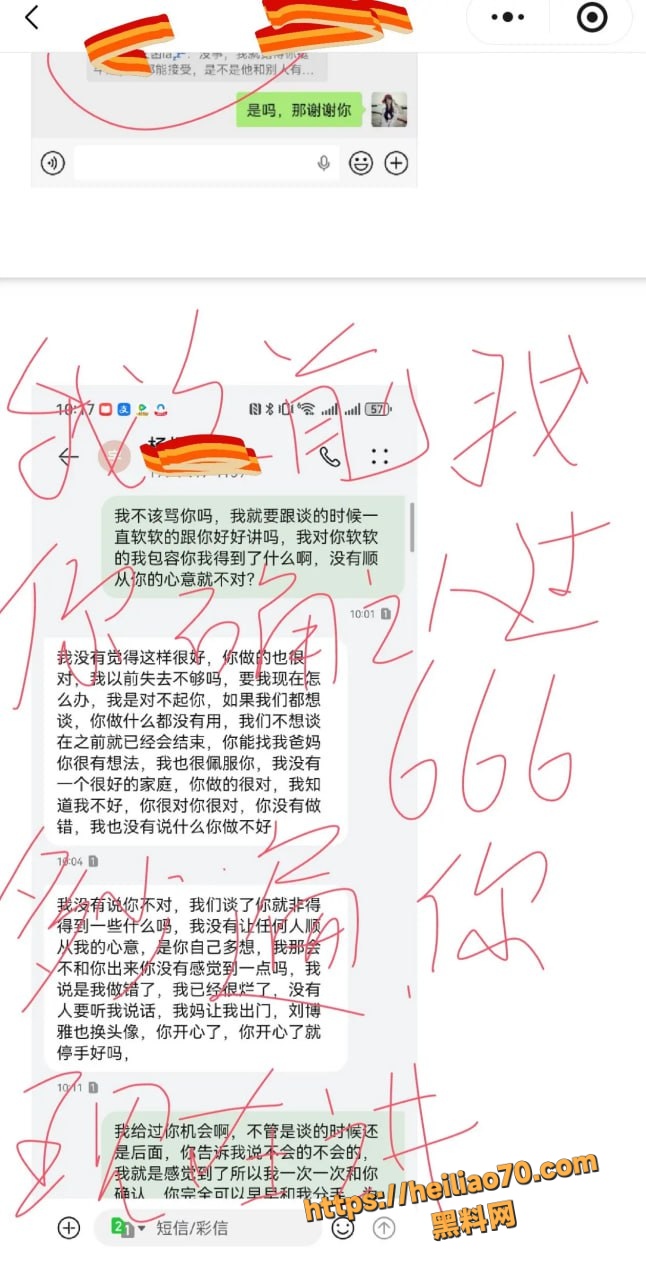 都能接受，是不是他和别人有...
是吗，那谢谢你
10:17
57
我之前我
我不该骂你吗，我就要跟谈的时候一
直软软的跟你好好讲吗，我对你软软
的我包容你我得到了什么啊，没有顺
从你的心意就不对？
10:01 1
你确认过
我没有觉得这样很好，你做的也很
对，我以前失去不够吗，要我现在怎
么办，我是对不起你，如果我们都想
谈，你做什么都没有用，我们不想谈
在之前就已经会结束，你能找我爸妈
你很有想法，我也很佩服你，我没有
一个很好的家庭，你做的很对，我知
道我不好，你很对你很对，你没有做
错，我也没有说什么你做不好
666
10:04 1
你
我没有说你不对，我们谈了你就非得
得到一些什么吗，我没有让任何人顺
从我的心意，是你自己多想，我那会
不和你出来你没有感觉到一点吗，我
说是我做错了，我已经很烂了，没有
人要听我说话，我妈让我出门，刘博
雅也换头像，你开心了，你开心了就
停手好吗，
10:11 1
现在讲
我给过你机会啊，不管是谈的时候还
是后面，你告诉我说不会的不会的，
我就是感觉到了所以我一次一次和你
确认，你完全可以早早和我分手，为
https://heiliao70.com
黑料网
短信/彩信